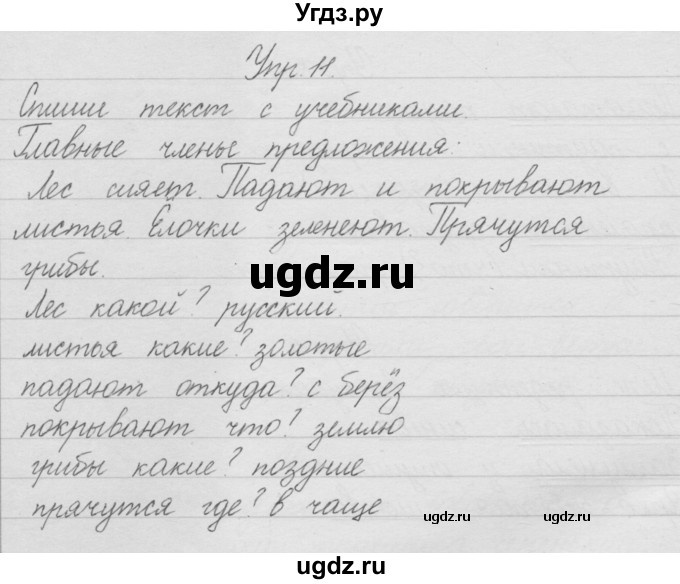 Угдз.ру
Упр. 11.
Спиши текст с учебниками.
Главные члены предложения:
Лес сияет. Падают и покрывают
листья. Ёлочки зеленеют. Прячутся
грибы.
ugdz.ru
Лес какой? русский.
листья какие? золотые
падают откуда? с берёз
покрывают что? землю
грибы какие? поздние
прячутся где? в чаще
ugdz.ru ugdz.ru
ugdz.ru